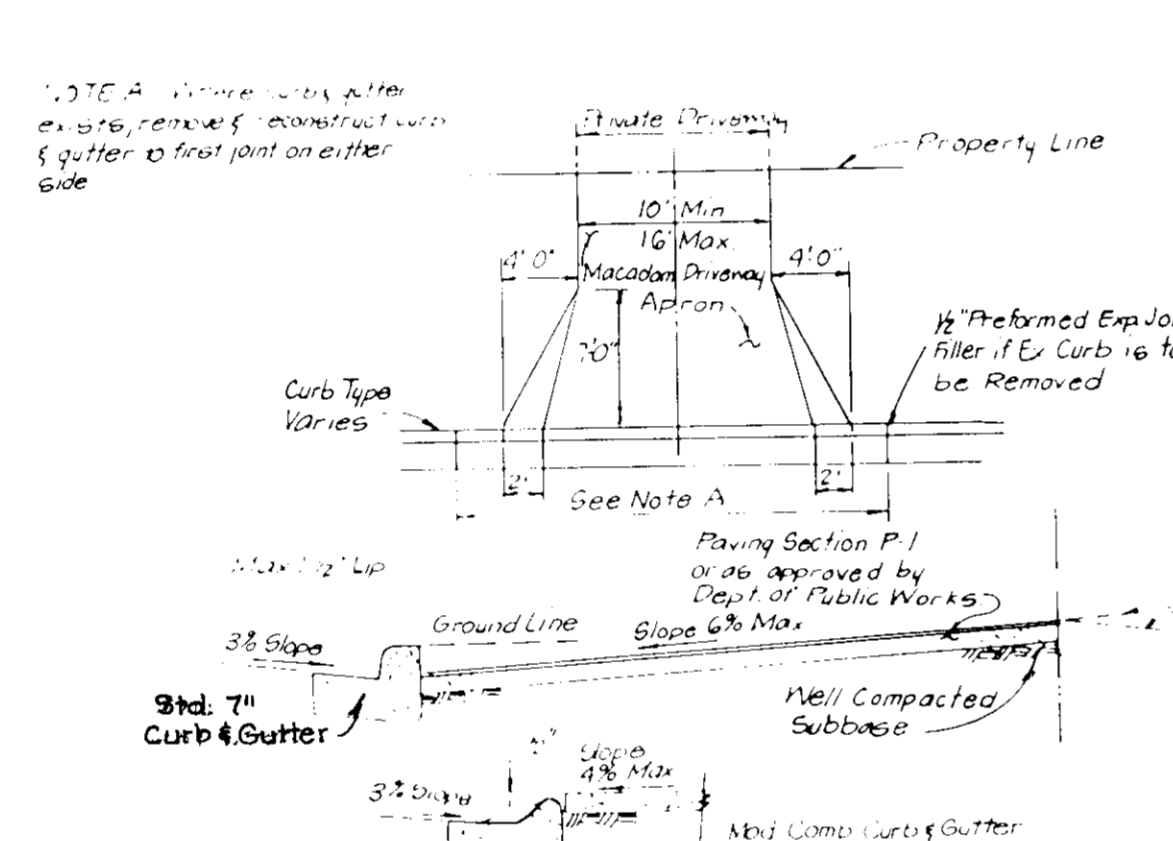 NOTE A Where curb & gutter
exists, remove & reconstruct curb
& gutter to first joint on either
side
Private Driveway
Property Line
10' Min
16' Max.
4'0"
4'0"
Macadam Driveway
Apron
7'0"
1/2" Preformed Exp. Jo
Filler if Ex Curb is to
be Removed
Curb Type
Varies
2'
2'
See Note A
Max 1 1/2" Lip
Paving Section P-1
or as approved by
Dept. of Public Works.
Ground Line
Slope 6% Max
3% Slope
Std. 7"
Curb & Gutter
Well Compacted
Subbase
Slope
4% Max
3% Slope
Mod Comb Curb & Gutter